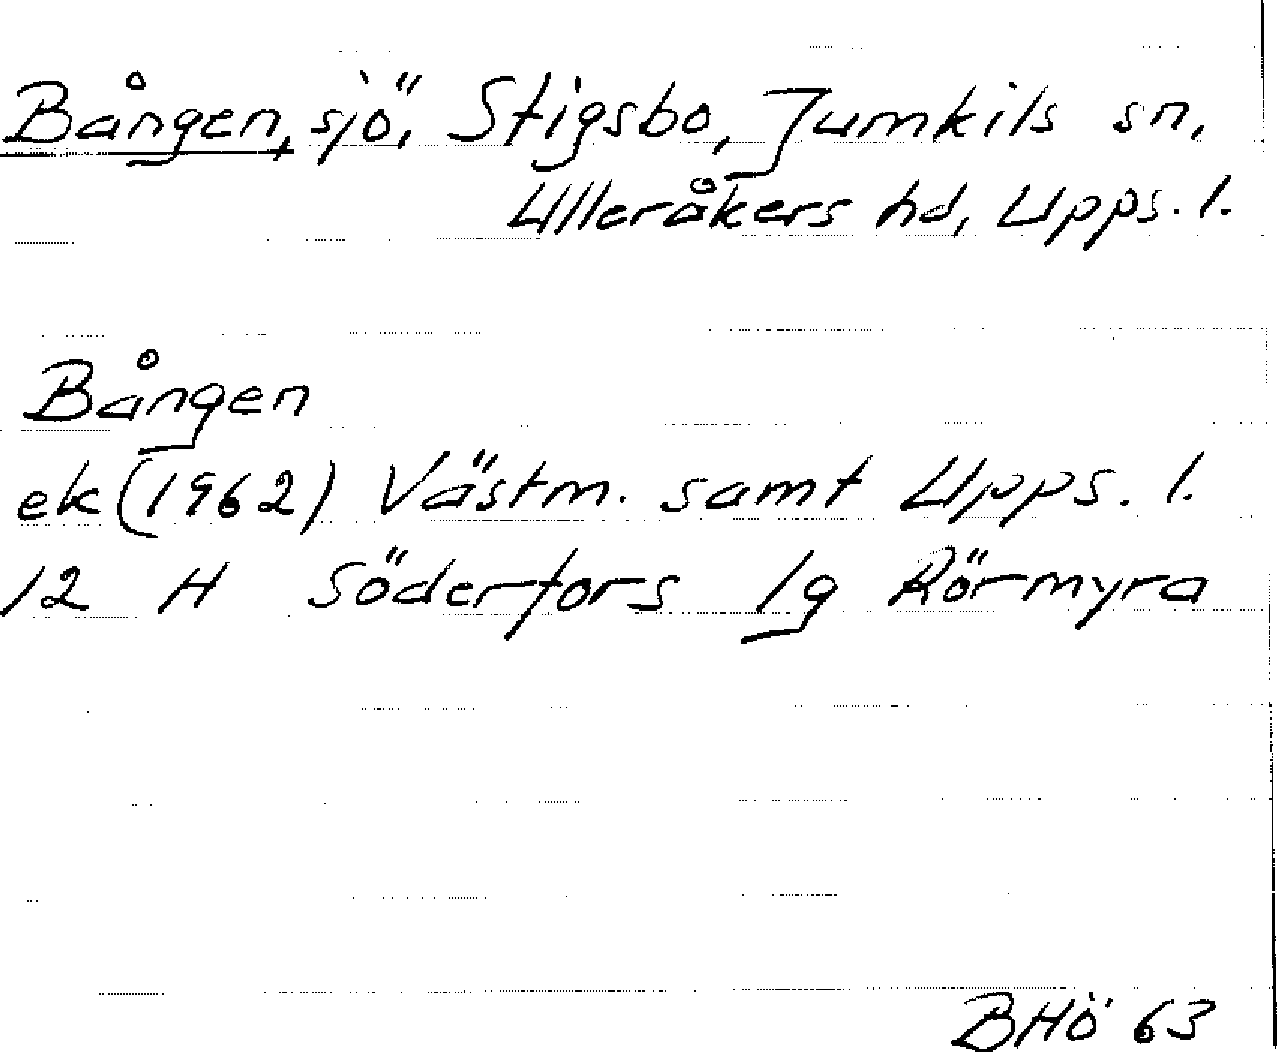 Bången, sjö, Stigsbo, Jumkils sn,
Ulleråkers hd, Upps. l.
Bången
ek (1962) Västm. samt Upps. l.
12 H Söderfors 1g Rörmyra
BHö 63